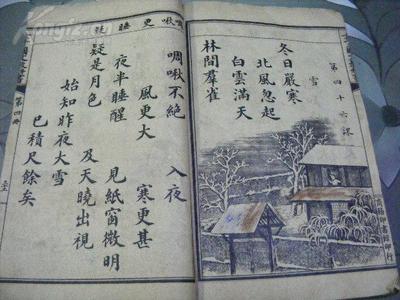 第四十六課
雪
冬日嚴寒
北風忽起
白雲滿天
林間羣雀
啁啾不絕 入夜
風更大 寒更甚
夜半睡醒 見紙窗微明
疑是月色 及天曉出視
始知昨夜大雪
已積尺餘矣
啾 更 睡
第四冊